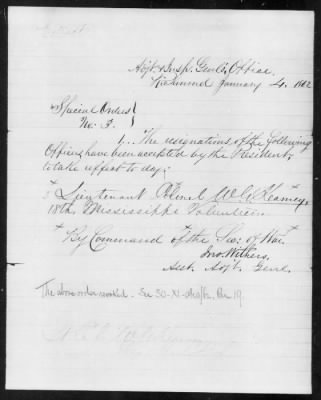 Extract
Adjt. & Insp. Genls. Office,
Richmond January 4. 1862
Special Orders
No. 3.
1.. The resignations of the following
Officers have been accepted by the President,
to take effect to day;
Lieutenant Colonel W. G. Kearney,
18th Mississippi Volunteers.
By Command of the Sec: of War.
Jno. Withers,
Asst. Adjt. Genl.
The above order revoked. See SO-XI-